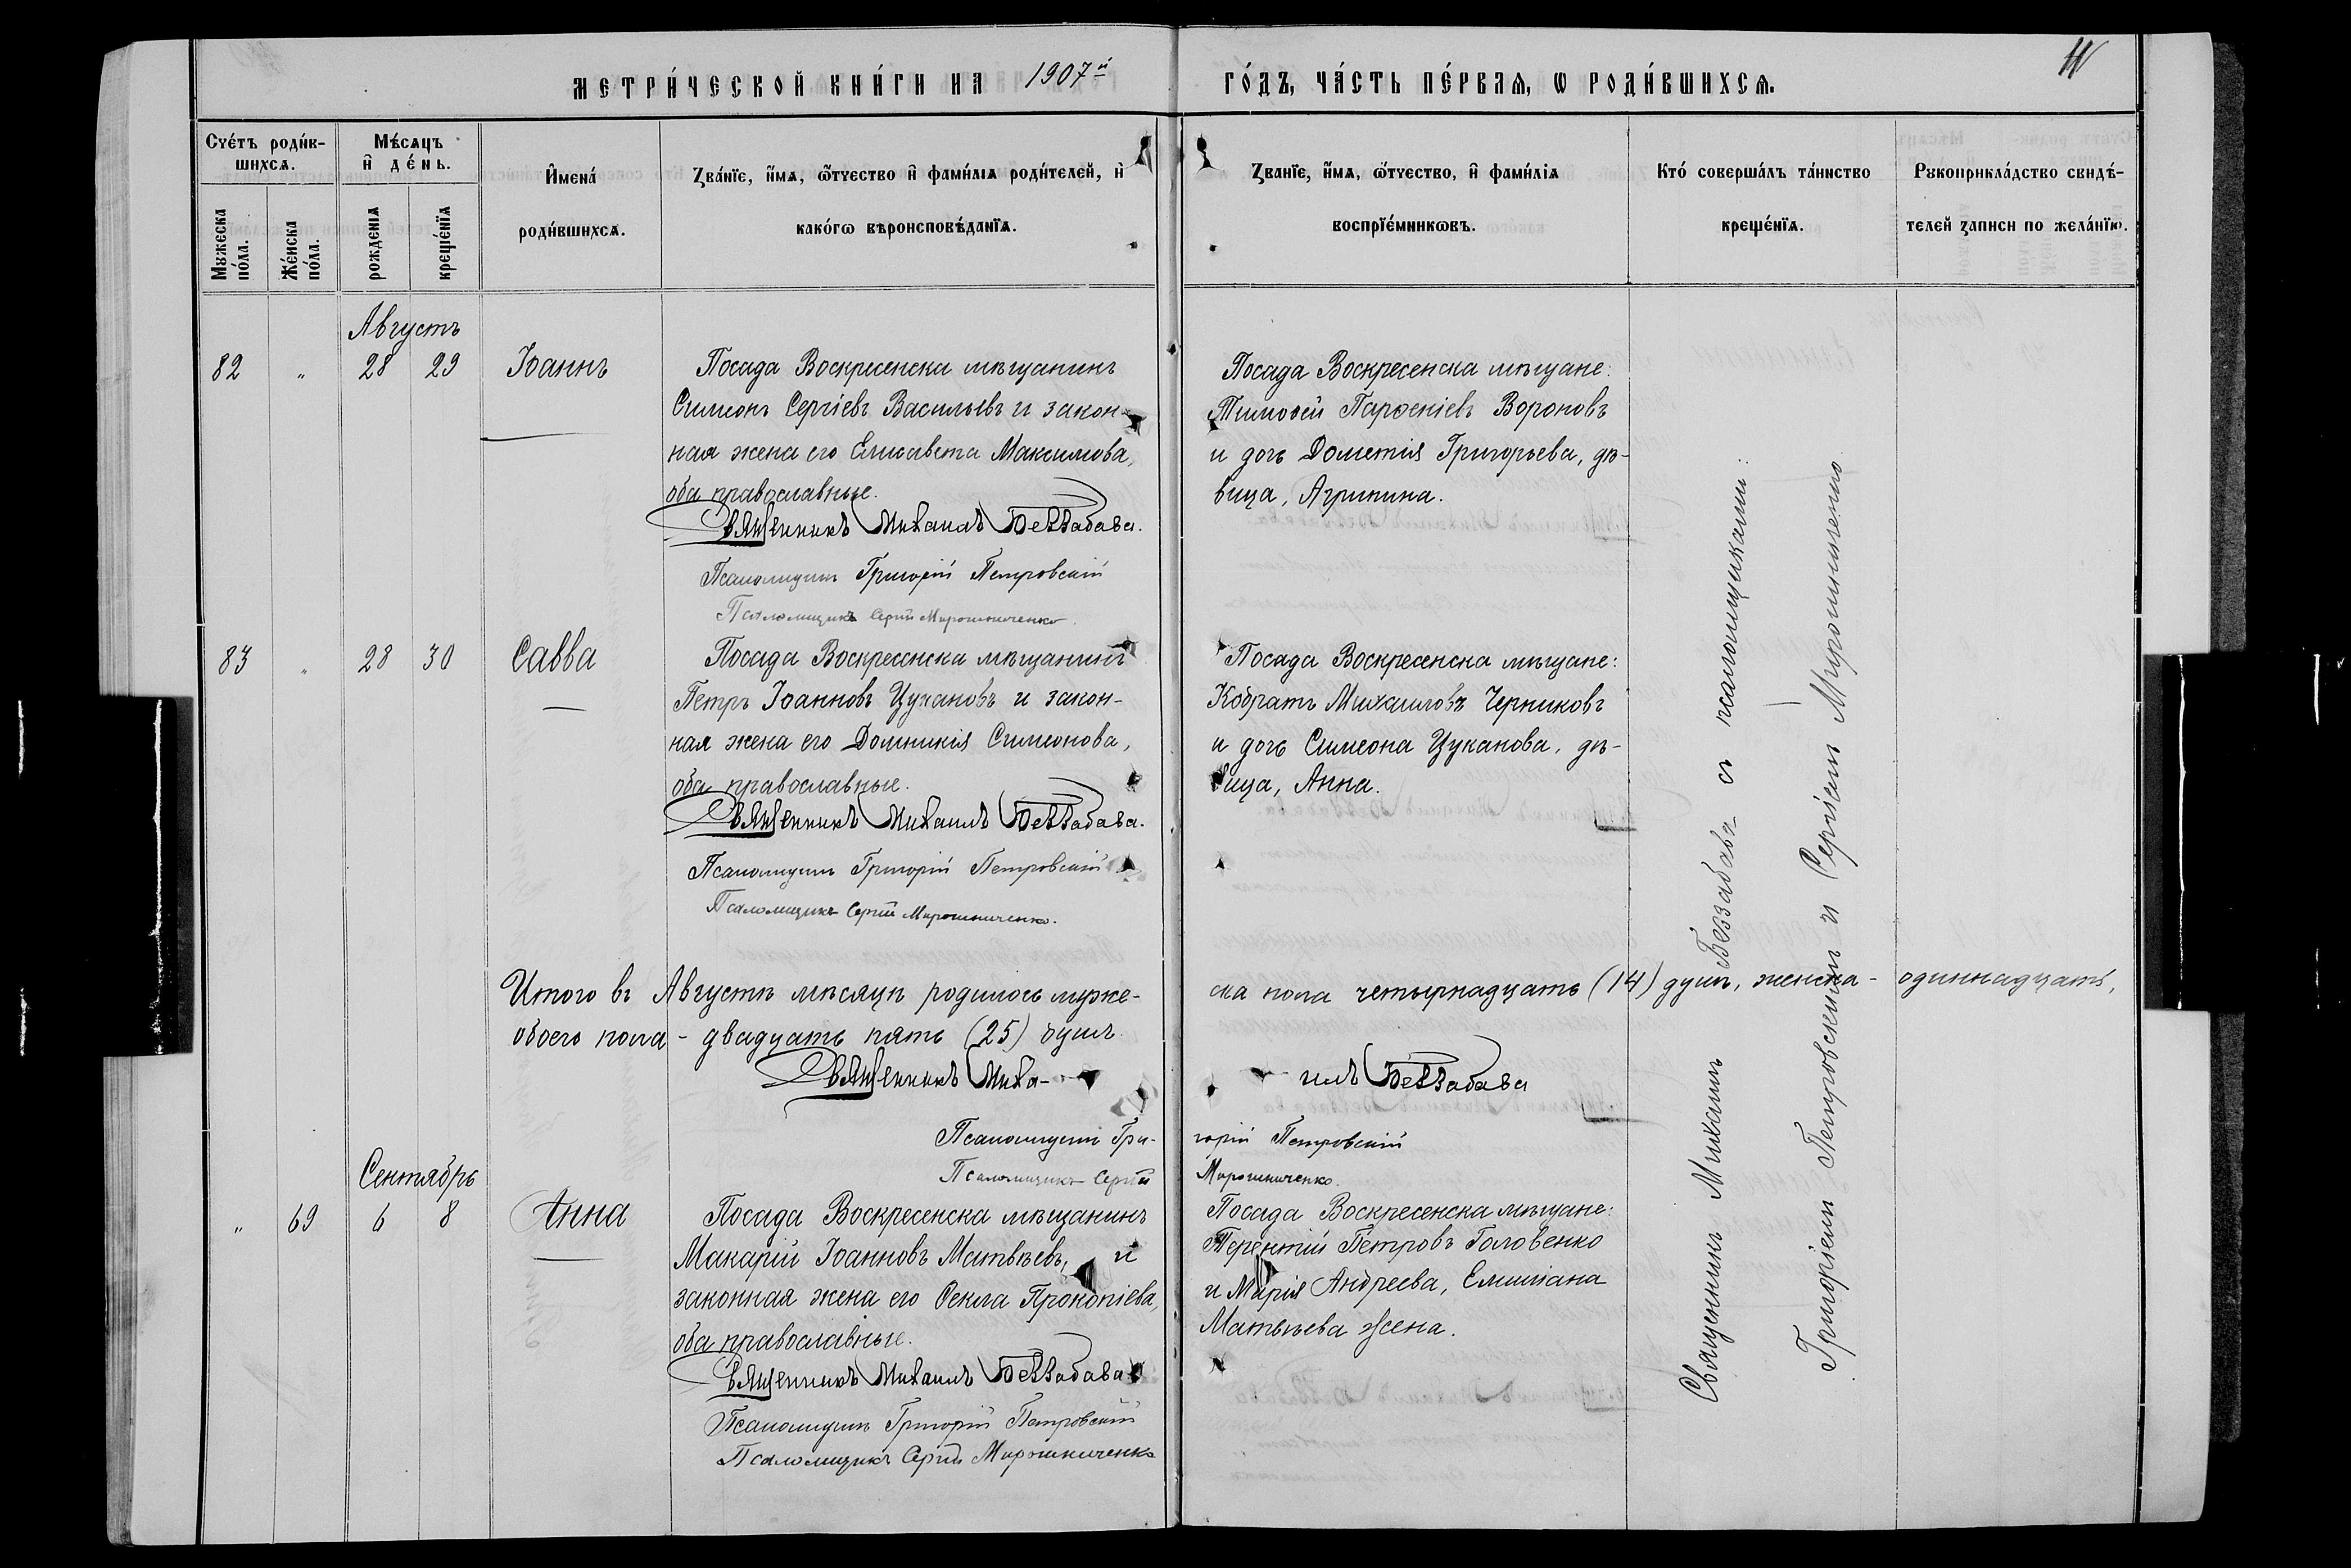 МЕТРИ́ЧЕСКОЙ КНИ́ГИ НА 1907й ГО́ДЪ, ЧА́СТЬ ПЕ́РВАѦ, Ѡ РОДИ́ВШИХСѦ.
Сче́тъ роди́в-
шихсѧ.
Мꙋжеска по́ла.
Же́нска по́ла.
Мѣ́сѧцъ
и҆ де́нь.
рожденіѧ
креще́нїѧ
И҆мена́
роди́вшихсѧ.
Зва́нїе, и҆́мѧ, ѻ҆́тчество и҆ фами́лїѧ роди́телей, и҆
како́гѡ вѣроисповѣ́данїѧ.
Зва́нїе, и҆́мѧ, ѻ҆́тчество, и҆ фами́лїѧ
воспрїе́мникѡвъ.
Кто́ соверша́лъ та́инство
креще́нїѧ.
Рꙋкоприкла́дство свидѣ́-
телей записи по жела́нїю.
Августъ
82 " 28 29 Іоаннъ
Посада Воскресенска мѣщанинъ
Симеонъ Сергіевъ Васильевъ и закон-
ная жена его Елисавета Максимова,
оба православные.
Священникъ Михаилъ Беззабава.
Псаломщикъ Григорій Петровскій
Псаломщикъ Сергій Мирошниченко.
Посада Воскресенска мѣщане:
Тимоѳей Парѳеніевъ Вороновъ
и дочь Дометія Григорьева, дѣ-
вица, Агрипина.
83 " 28 30 Савва
Посада Воскресенска мѣщанинъ
Петръ Іоанновъ Цукановъ и закон-
ная жена его Домникія Симеонова,
оба православные.
Священникъ Михаилъ Беззабава.
Псаломщикъ Григорій Петровскій
Псаломщикъ Сергій Мирошниченко.
Посада Воскресенска мѣщане:
Кодратъ Михаиловъ Черниковъ
и дочь Симеона Цуканова, дѣ-
вица, Анна.
Итого въ Августѣ мѣсяцѣ родилось муже-
ска пола четырнадцать (14) душъ, женска - одиннадцать,
обоего пола - двадцать пять (25) душъ.
Священникъ Миха-
илъ Беззабава
Псаломщикъ Гри-
горій Петровскій
Псаломщикъ Сергій
Мирошниченко.
Сентябрь
" 69 6 8 Анна
Посада Воскресенска мѣщанинъ
Макарій Іоанновъ Матвѣевъ, и
законная жена его Ѳекла Прокопіева,
оба православные.
Священникъ Михаилъ Беззабава
Псаломщикъ Григорій Петровскій
Псаломщикъ Сергій Мирошниченко
Посада Воскресенска мѣщане:
Терентій Петровъ Головенко
и Марія Андреева, Емиліана
Матвѣева жена.
Священникъ Михаилъ Беззабава съ псаломщиками
Григоріемъ Петровскимъ и Сергіемъ Мирошниченко